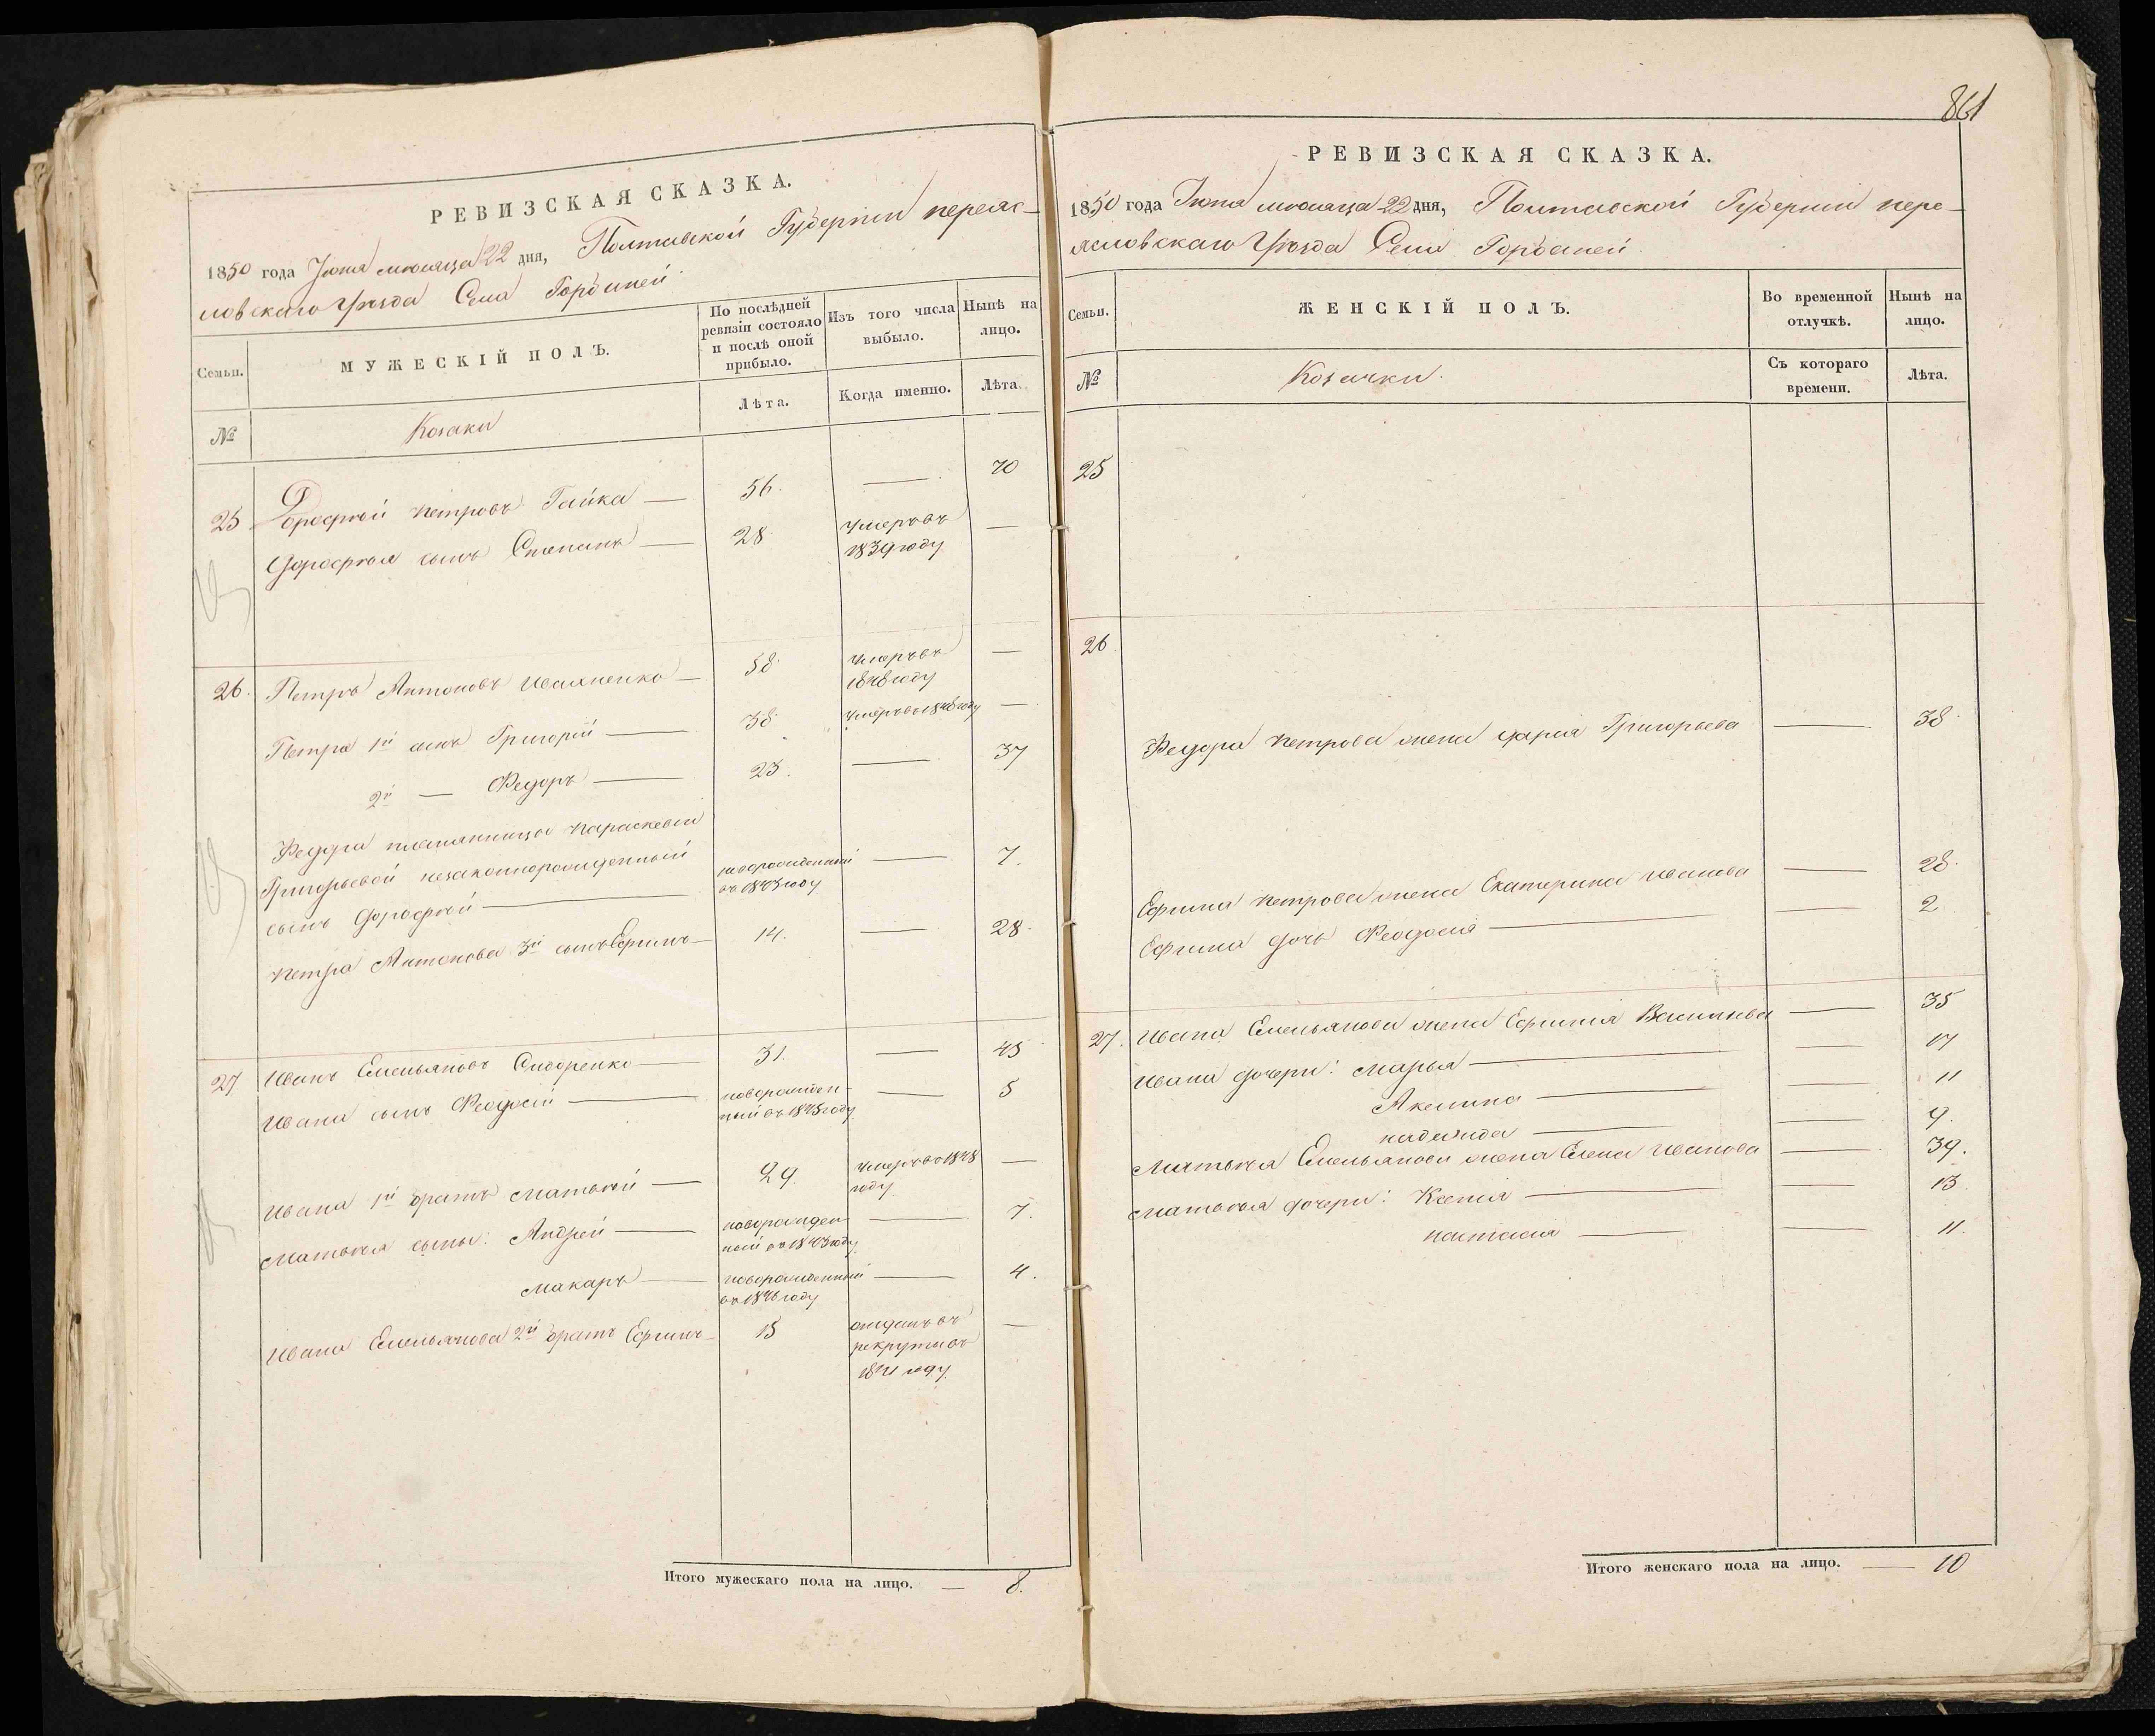 РЕВИЗСКАЯ СКАЗКА.
1850 года Июня месяца 22 дня, Полтавской Губернии переяс-
ловскаго уѣзда Села Горбаней
Семьи.
МУЖЕСКІЙ ПОЛЪ.
По послѣдней
ревизіи состояло
и послѣ оной
прибыло.
Изъ того числа
выбыло.
Нынѣ на
лицо.
№
Козаки
Лѣта.
Когда именно.
Лѣта.
25 Дорофѣй петровъ Гайка — 56. — 70
Дорофѣя сынъ Степанъ — 28. умеръ въ —
1839 году
26. Петръ Антоновъ Ивахненко — 58. умеръ въ —
1848 году
Петра 1й сынъ Григорій — 38. умеръ въ 1848 году —
2й — Федоръ — 23. — 37
Федора племянницы параскевіи
Григорьевой незаконнорожденный новорожденный — 7.
сынъ Дорофѣй — въ 1843 году
петра Антонова 3й сынъ Ефимъ — 14. — 28.
27 Иванъ Емельяновъ Сидоренко — 31. — 45
Ивана сынъ Феодосій — новорожден- — 5
ный въ 1845 году
Ивана 1й братъ матвѣй — 29 умеръ въ 1848 —
году
матвѣя сыны: Андрей — новорожден- — 7.
ный въ 1843 году
макаръ — новорожденный — 4.
въ 1846 году
Ивана Емельянова 2й братъ Ефимъ — 15 отданъ въ —
рекруты въ
1841 году
Итого мужескаго пола на лицо. — 8.
861
РЕВИЗСКАЯ СКАЗКА.
1850 года Июня месяца 22 дня, Полтавской Губернии пере-
ясловскаго уѣзда Села Горбаней.
Семьи.
ЖЕНСКІЙ ПОЛЪ.
Во временной
отлучкѣ.
Нынѣ на
лицо.
№
Козачки.
Съ котораго
времени.
Лѣта.
25
26
Федора петрова жена дарія Григорьева — 38.
Ефима петрова жена Екатерина иванова — 28.
Ефима дочь Феодосія — — 2
27. Ивана Емельянова жена Ефимія Васильева — 35
Ивана дочери: марья — — 17
Акелина — — 11
надежда — — 9.
матвѣя Емельянова жена Елена Иванова — 39.
матвѣя дочери: Ксенія — — 13.
настасія — — 11.
Итого женскаго пола на лицо. — 10